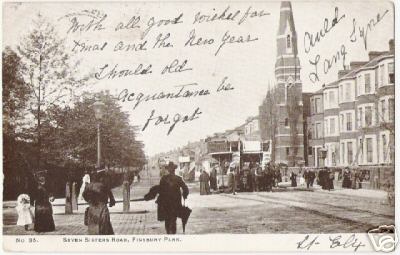 With all good wishes for
Xmas and the New Year
Should old
Acquantance be
forgot
Auld
Lang Syne
No 95.
SEVEN SISTERS ROAD, FINSBURY PARK.
ebay